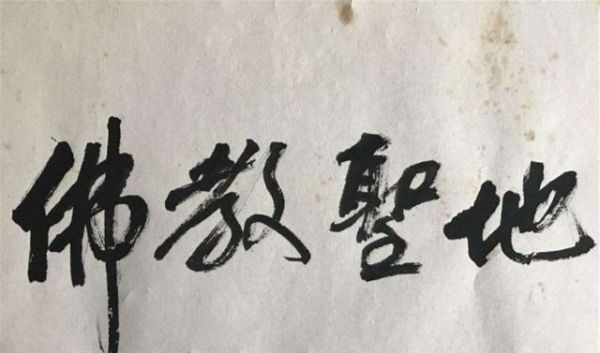 佛教聖地